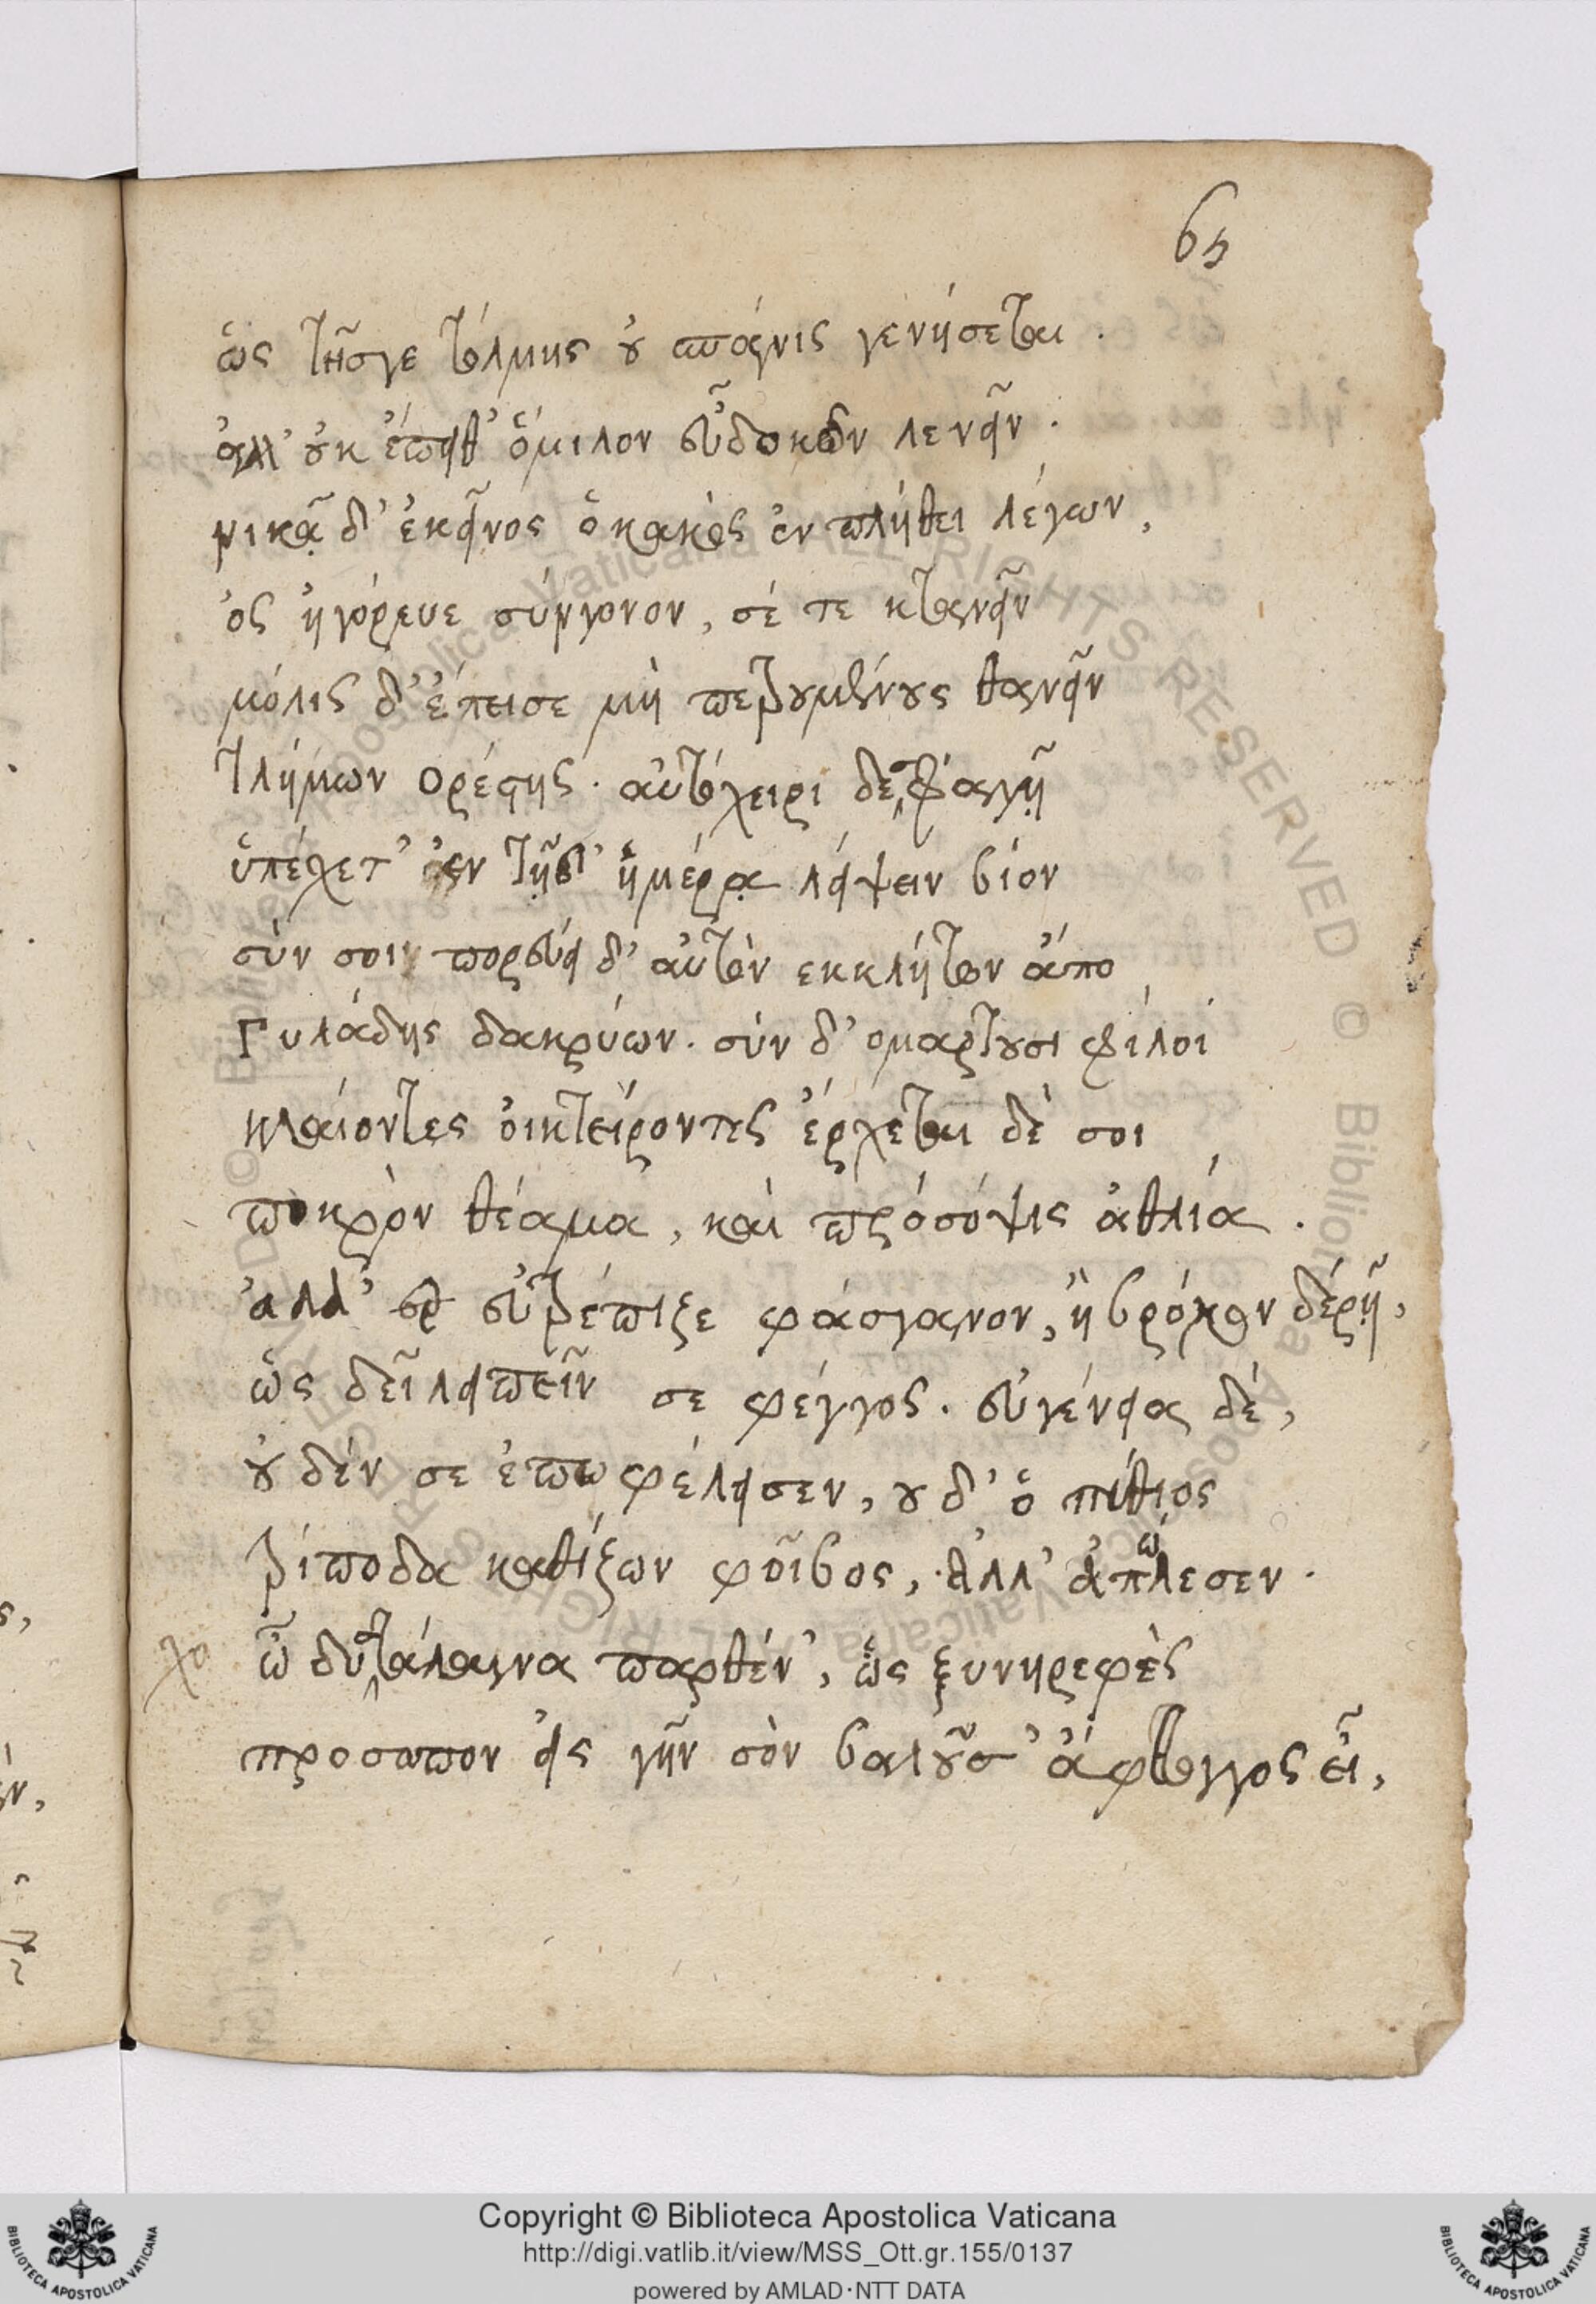 65
ὡς τῆσγε τόλμης οὐ σπάνις γενήσεται.
ἀλλ' οὐκ έπειθ' ὅμιλον εὖ δοκῶν λέγειν.
νικᾷ δ' ἐκεῖνος ὁ κακὸς ἐν πλήθει λέγων,
ὃς ἠγόρευε σύγγονον, σέ τε κτανεῖν
μόλις δ' έπεισε μὴ πετρουμένους θανεῖν
τλήμων ορέστης. αὐτόχειρι δε σφαγῇ
ὑπέχετ' ἐν τῇδ' ἡμέρᾳ λείψειν βίον
σὺν σοι πορεύει δ' αὐτὸν εκκλήτων άπο
Πυλάδης δακρύων. σὺν δ' ομαρτουσι φίλοι
κλαίοντες οἰκτείροντες έρχεται δέ σοι
πικρὸν θέαμα, καὶ πρόσόψις ἀθλία.
ἀλλ' εὐτρέπιζε φάσγανον, ἢ βρόχον δέρῃ,
ὡς δεῖ λειπεῖν σε φέγγος. εὐγένεια δέ,
οὐδέν σε ἐπωφέλησεν, ουδ' ὁ πύθιος
τρίποδα καθίζων φοῖβος, ἀλλ' ἀπώλεσεν.
χο ὦ δυστάλαινα παρθέν', ὡς ξυνηρεφὲς
προσωπον εἰς γῆν σὸν βαλοῦσ' άφθογγος εἶ,
Copyright © Biblioteca Apostolica Vaticana
http://digi.vatlib.it/view/MSS_Ott.gr.155/0137
powered by AMLAD·NTT DATA
BIBLIOTECA APOSTOLICA VATICANA
BIBLIOTECA APOSTOLICA VATICANA